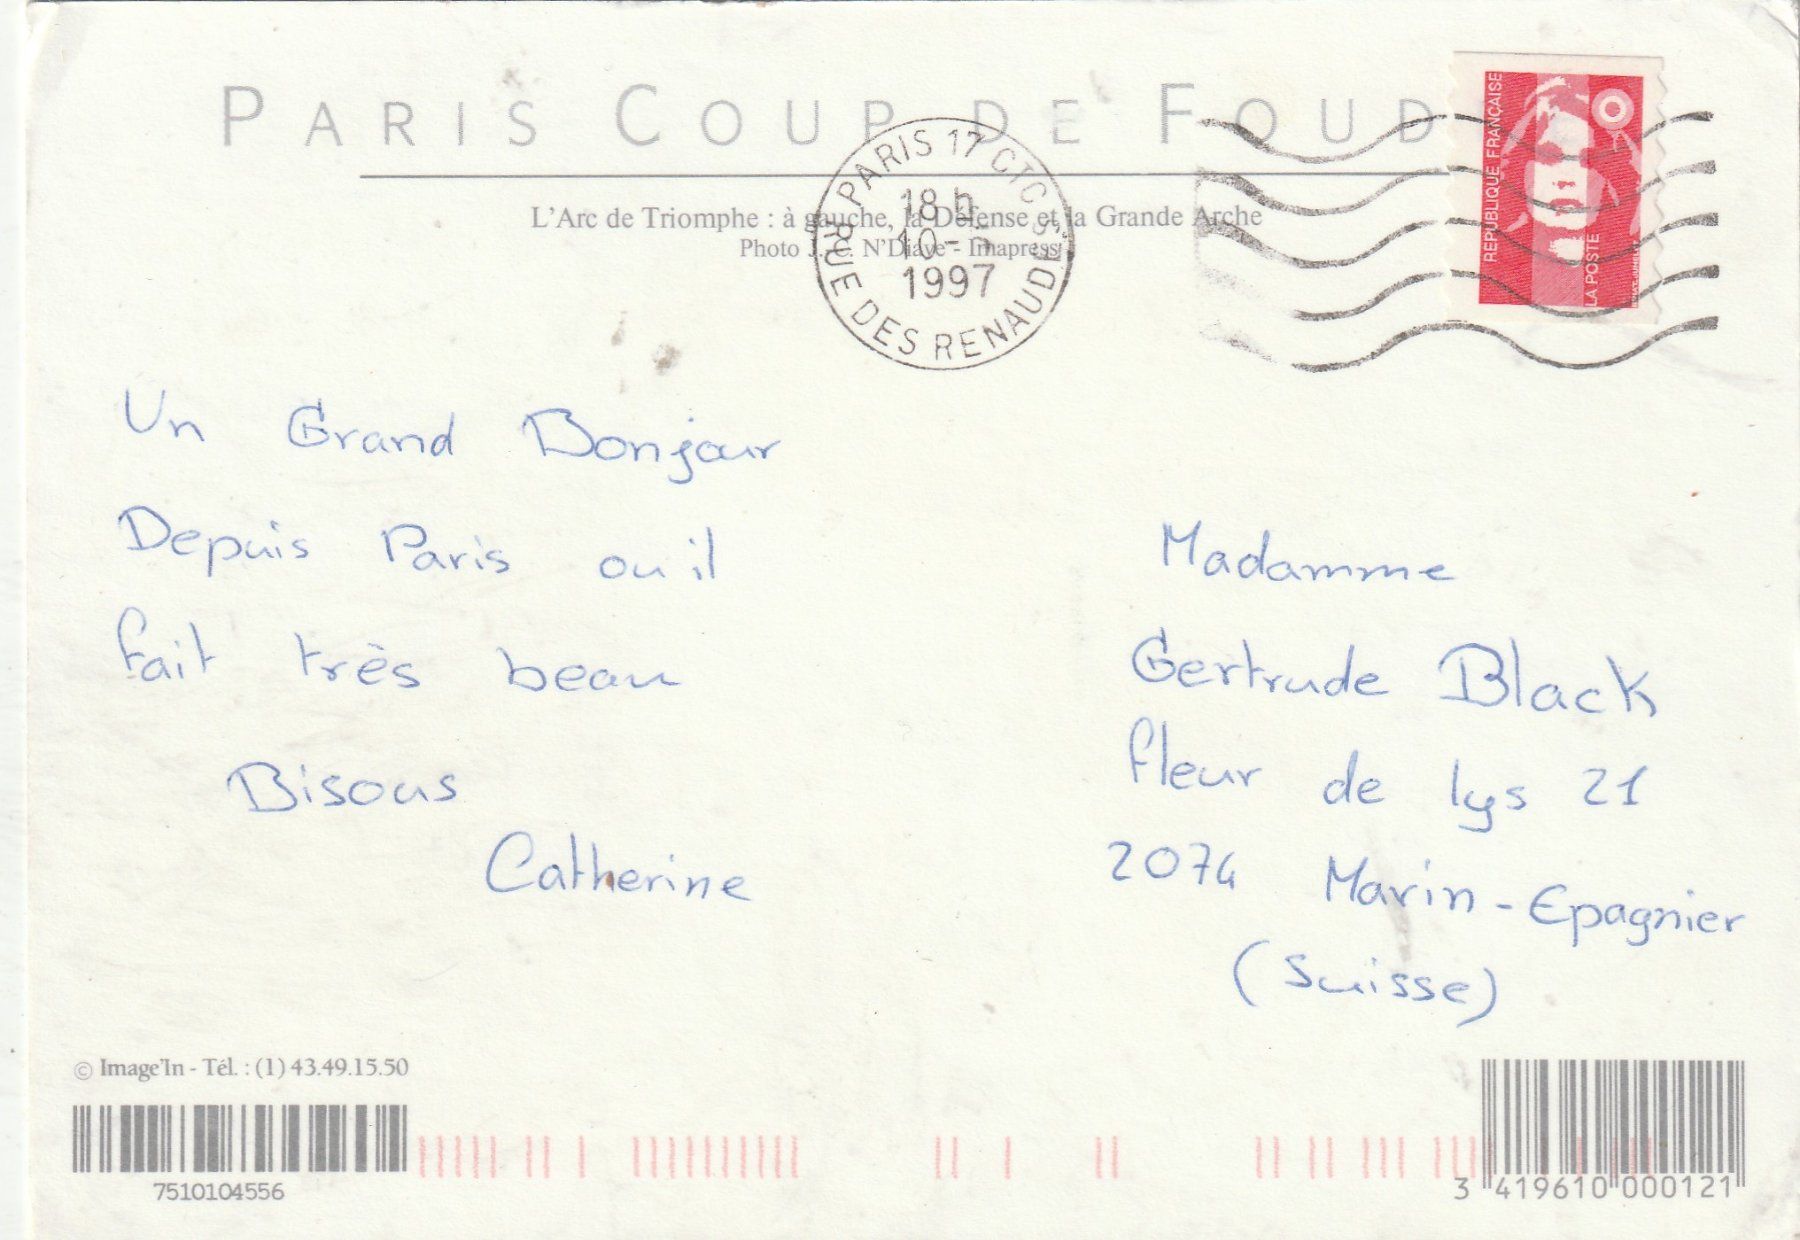 PARIS COUP DE FOUD
L'Arc de Triomphe : à gauche, la Défense et la Grande Arche
Photo J. C. N'Diaye - Imapress
PARIS 17 CTC
18 h
10-
1997
RUE DES RENAUDES
REPUBLIQUE FRANÇAISE
LA POSTE
Un Grand Bonjour
Depuis Paris ou il
fait très beau
Bisous
Catherine
Madamme
Gertrude Black
fleur de lys 21
2074 Marin-Epagnier
(Suisse)
© Image'In - Tél. : (1) 43.49.15.50
7510104556
3 419610 000121